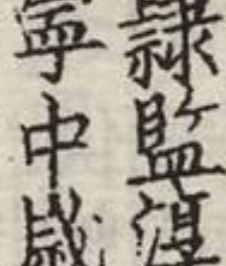 隸監
寧中歲